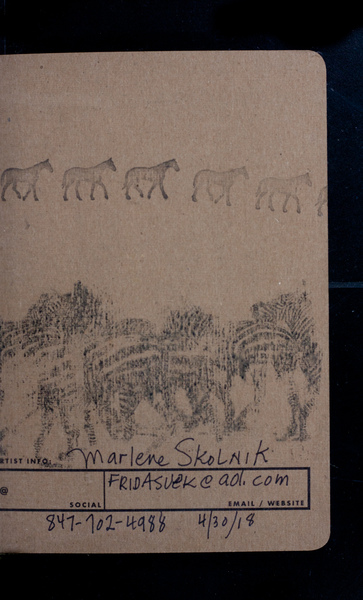 RTIST INFO: Marlene SKOLNIK
@
SOCIAL
FRIDASUEK@aol.com
EMAIL / WEBSITE
847-702-4988 4/30/18